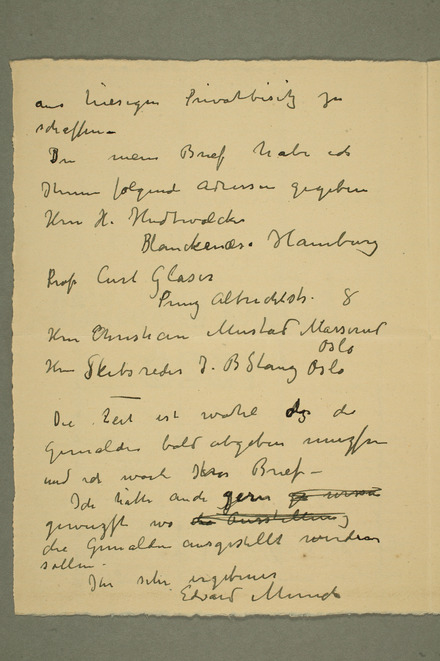 aus hiesigen Privatbisitz zu
schaffen –
In meine Brief habe ich
Ihnen folgende Adressen gegeben
Herr H. Hudtwalcker
Blanckenæse Hamburg
Prof Curt Glaser
Prinz Albrechtstr. 8
Herr Christian Mustad Masserud
Oslo
Herr Skibsreder J. B Stang Oslo
Die Zeit ist wohl das die
Gemälden bald abgeben muszsen
und ich warte Ihres Brief –
Ich hätte auch gern zu wissen
gewuszt wo die Ausstellung
die Gemälden ausgestellt werden
sollen.
Ihr sehr ergebener
Edvard Munch